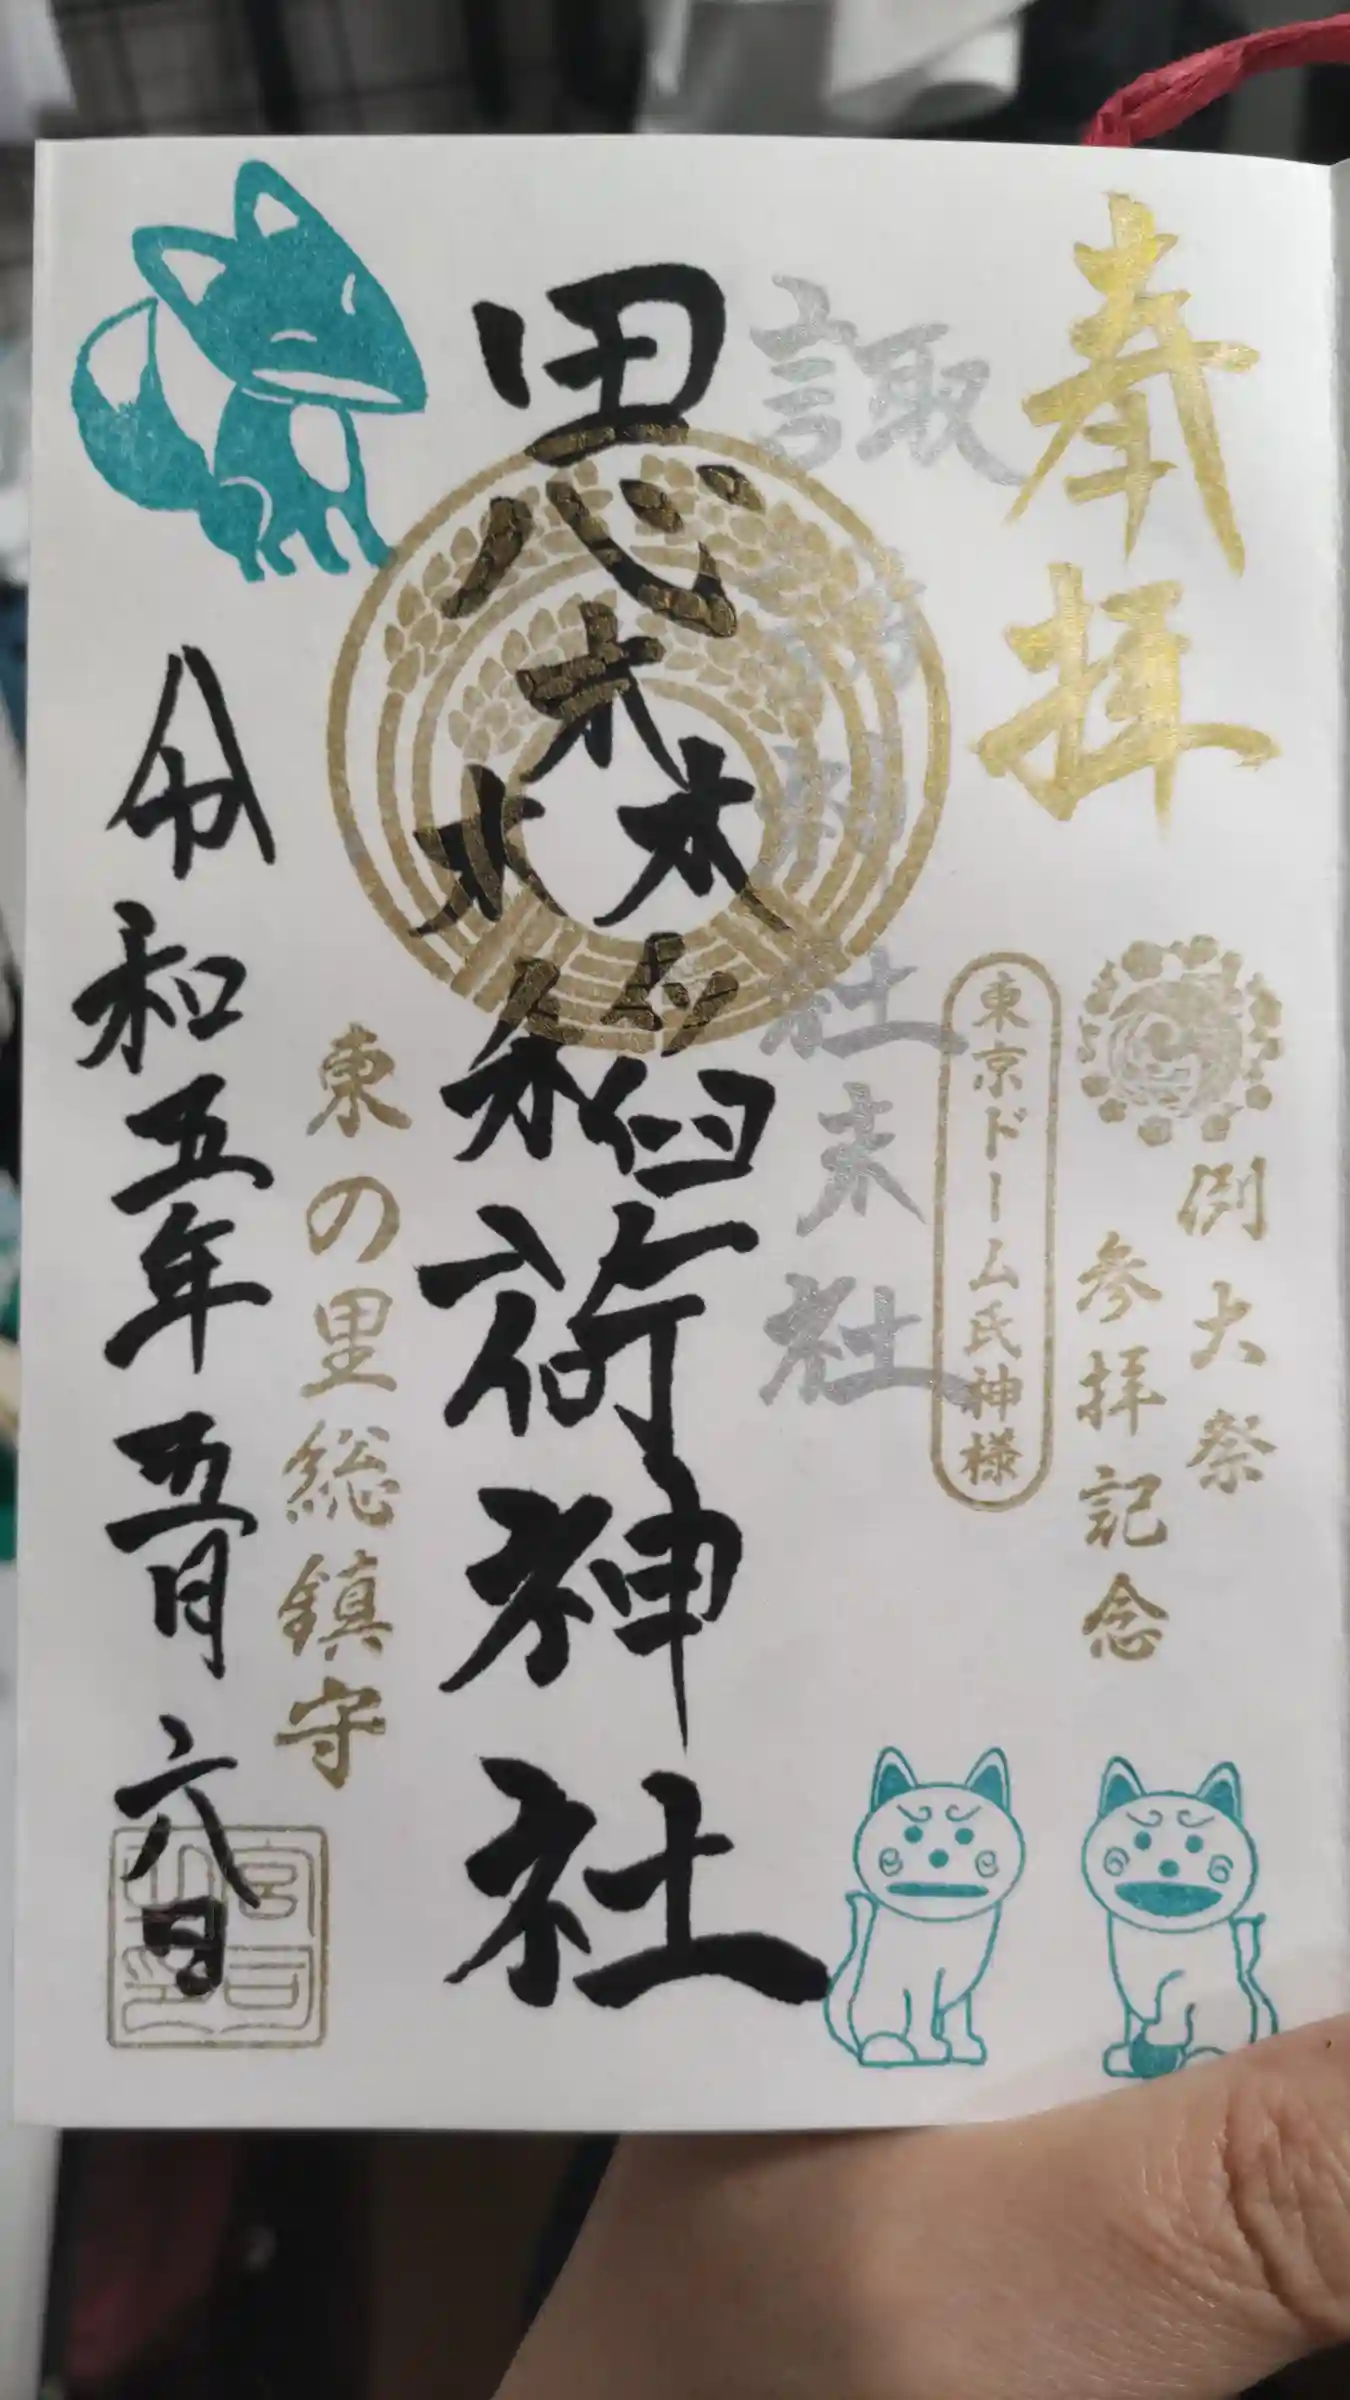 奉拝
例大祭
参拝記念
東京ドーム氏神様
諏訪神社末社
思森稲荷神社
東の里総鎮守
令和五年五月六日
宮司之印